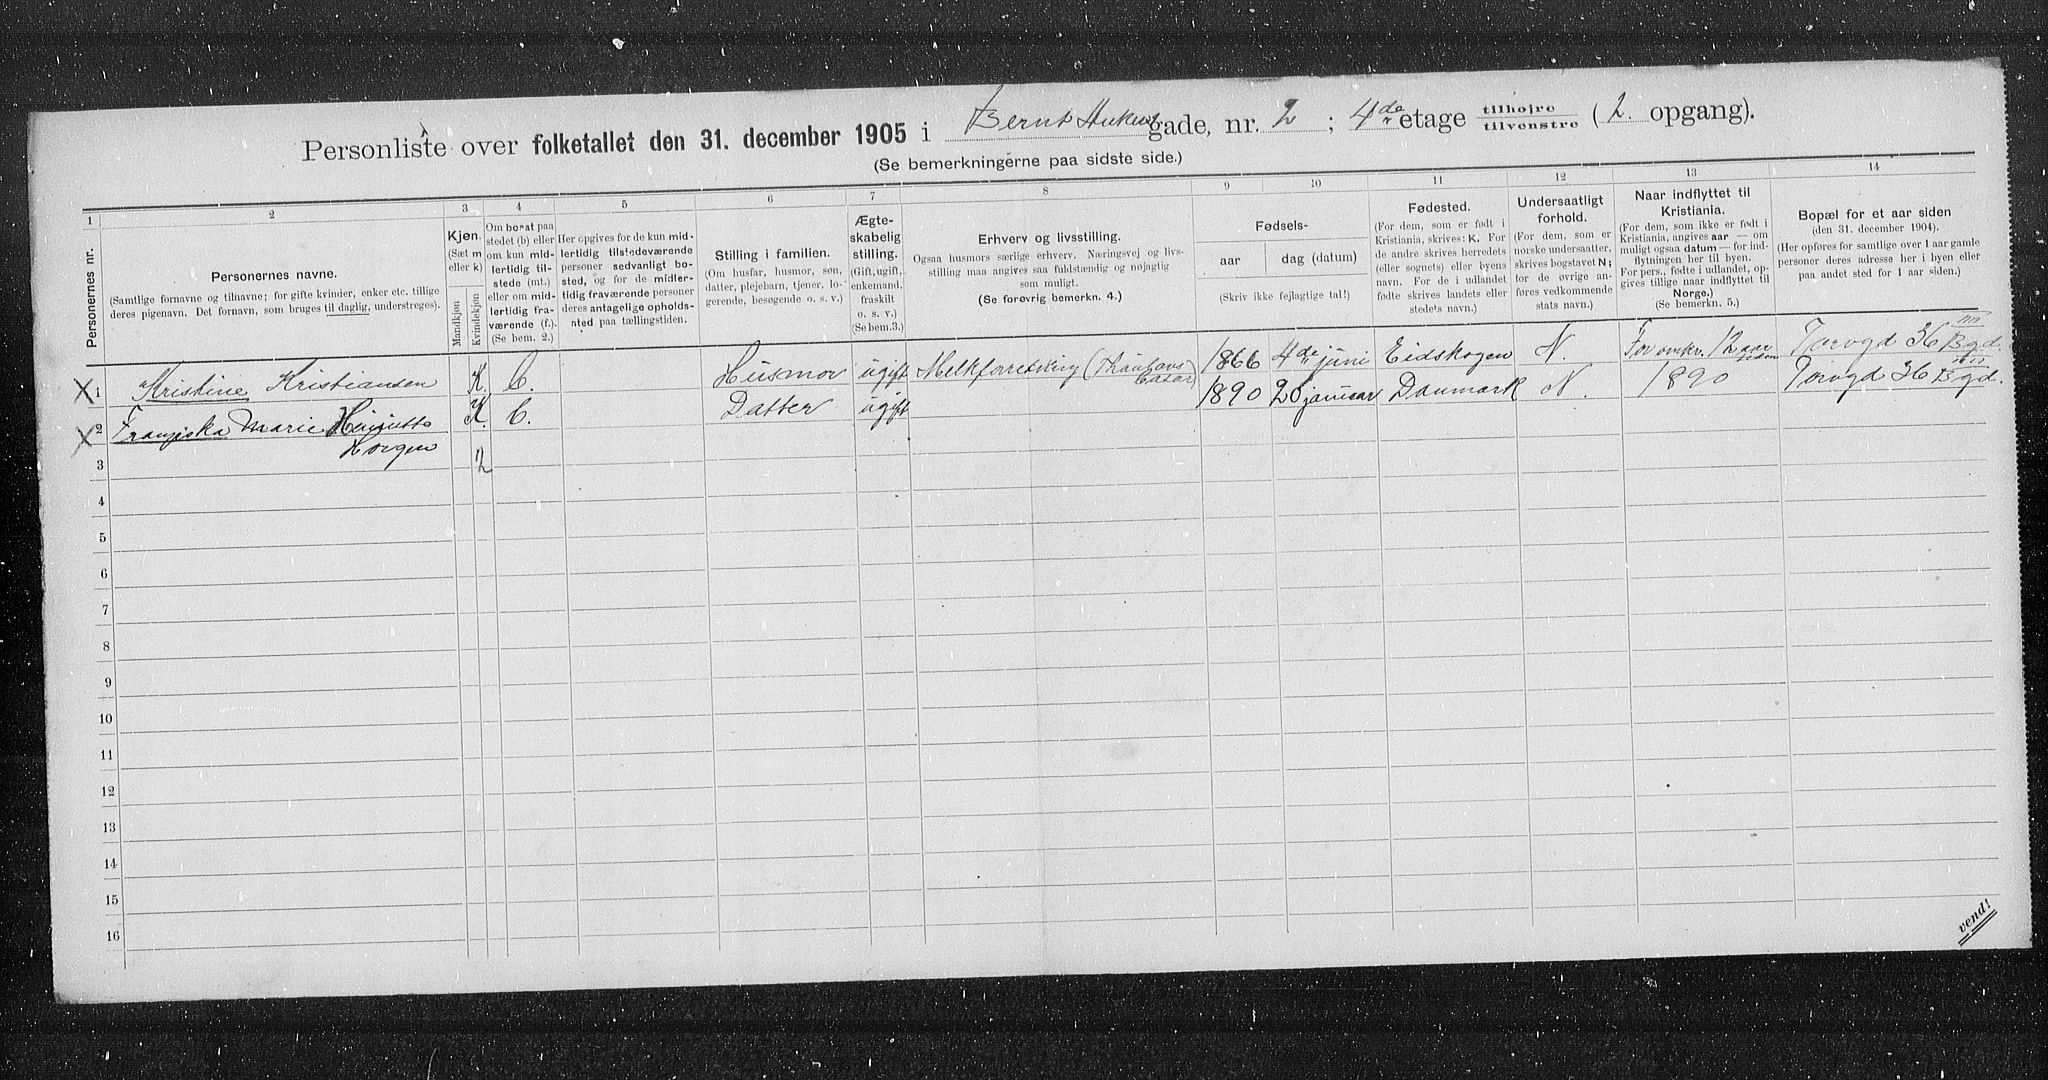 Personliste over folketallet den 31. december 1905 i Bernt Ankers gade, nr. 2 ; 4de etage tilhøjre / tilvenstre ( 2. opgang).
(Se bemerkningerne paa sidste side.)
1 2 3 4 5 6 7 8 9 10 11 12 13 14
Personernes nr.
Personernes navne.
(Samtlige fornavne og tilnavne; for gifte kvinder, enker etc. tillige
deres pigenavn. Det fornavn, som bruges til daglig, understreges).
Kjøn.
(Sæt m
eller k)
Mandkjøn
Kvindekjøn.
Om bosat paa
stedet (b) eller
om kun mid-
lertidig til-
stede (mt.)
eller om mid-
lertidig fra-
værende (f.).
(Se bem. 2.)
Her opgives for de kun mid-
lertidig tilstedeværende
personer sedvanlig bo-
sted, og for de midler-
tidig fraværende personer
deres antagelige opholds-
sted paa tællingstiden.
Stilling i familien.
(Om husfar, husmor, søn,
datter, plejebarn, tjener, lo-
gerende, besøgende o. s. v.)
Ægte-
skabelig
stilling.
(Gift, ugift,
enkemand,
fraskilt
o. s. v.)
(Se bem.3.)
Erhverv og livsstilling.
Ogsaa husmors særlige erhverv. Næringsvej og livs-
stilling maa angives saa fuldstændig og nøjagtig
som muligt.
(Se forøvrig bemerkn. 4.)
Fødsels-
aar
dag (datum)
(Skriv ikke fejlagtige tal!)
Fødested.
(For dem, som er født i
Kristiania, skrives: K. For
de andre skrives herredets
(eller sognets) eller byens
navn. For de i udlandet
fødte skrives landets eller
stedets navn.)
Undersaatligt
forhold.
(For dem, som er
norske undersaatter,
skrives bogstavet N;
for de øvrige an-
føres vedkommende
stats navn.)
Naar indflyttet til
Kristiania.
(For dem, som ikke er født i
Kristiania, angives aar — om
muligt ogsaa datum — for ind-
flytningen her til byen.
For pers., fødte i udlandet, op-
gives tillige naar indflyttet til
Norge.)
(Se bemerkn. 5.)
Bopæl for et aar siden
(den 31. december 1904).
(Her opføres for samtlige over 1 aar gamle
personer deres adresse her i byen eller
paa andet sted for 1 aar siden.)
X 1 Kristine Kristiansen K. b. Husmor ugift Melkforretning 1866 4de juni Eidskogen N. For omkr. 12 aar siden Torvgd 36 III Bgd.
X 2 Franziska Marie K. b. Datter ugift 1890 20 januar Danmark N. 1890 Torvgd 36 III Bgd.
Horgen
3 2
4
5
6
7
8
9
10
11
12
13
14
15
16
vend!